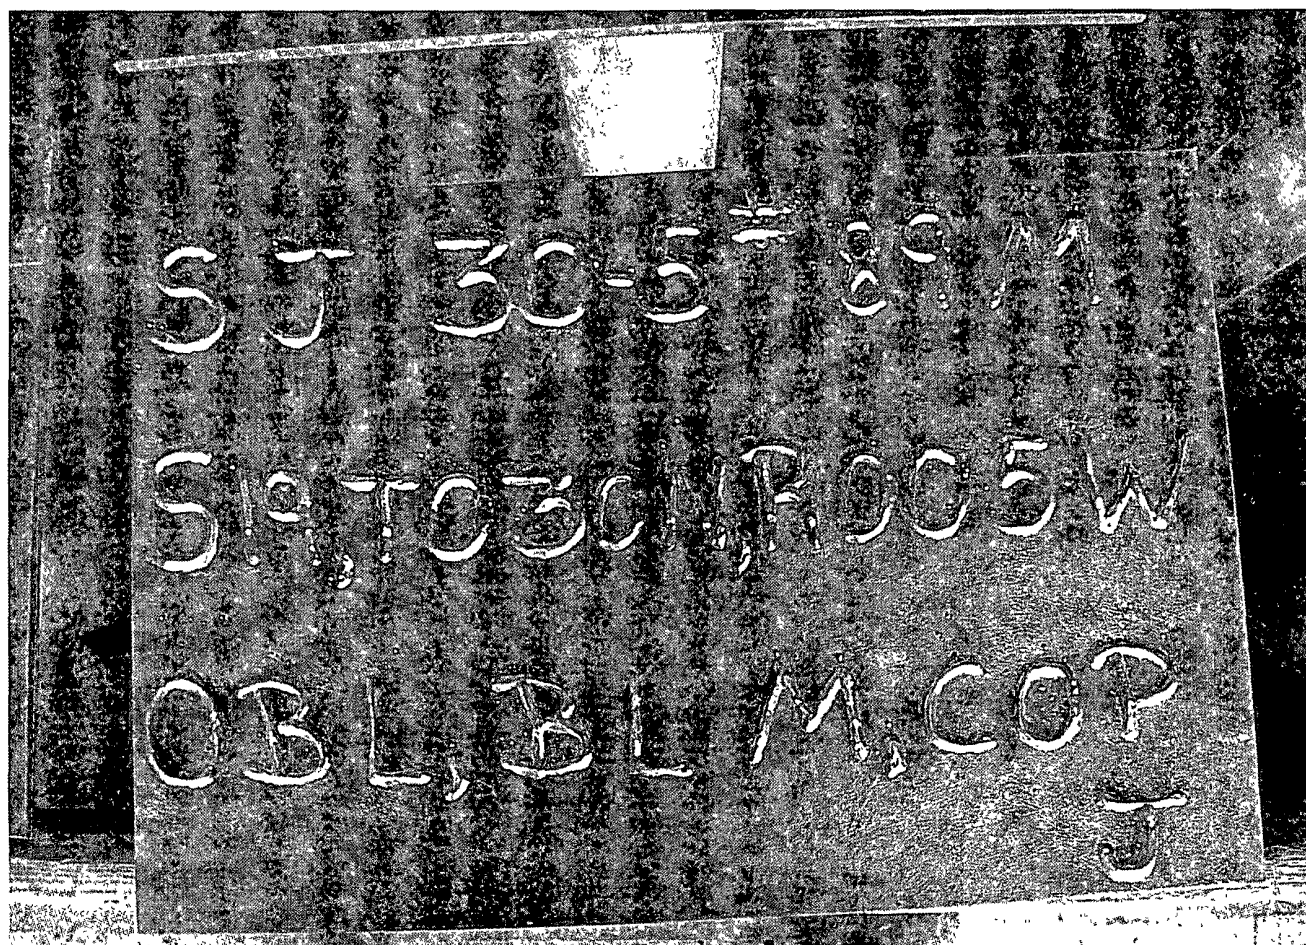 SJ 30-5 # 89 M
S19, T030N, R005W
OBL, BLM, COP
J